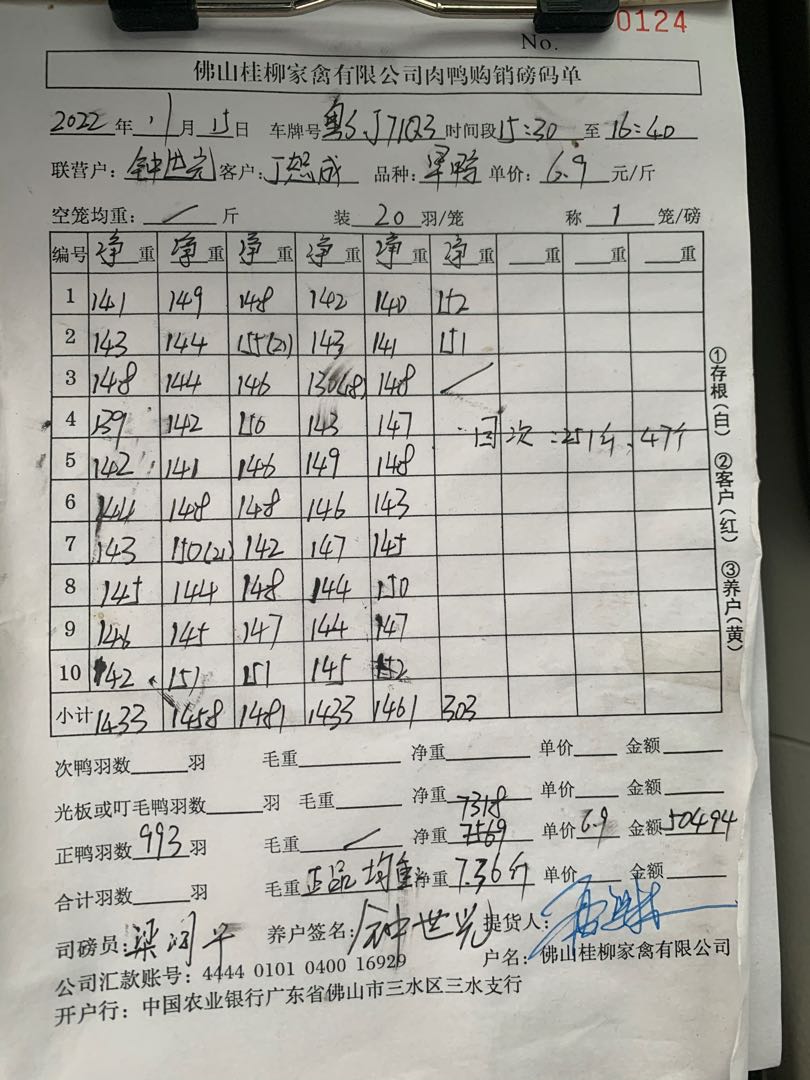 No. 0124
佛山桂柳家禽有限公司肉鸭购销磅码单
2022 年 11 月 15 日 车牌号 粤 J71Q3 时间段 15:30 至 16:40
联营户: 钟世光 客户: 成 品种: 鸭 单价: 6.9 元/斤
空笼均重: / 斤 装 20 羽/笼 称 1 笼/磅
编号 净重 净重 净重 净重 净重 净重 重 重 重
1 141 149 148 142 140 152
2 143 144 155(21) 143 141 151
3 148 144 146 130(18) 148 /
4 139 142 150 143 147 回次:251斤,47个
5 142 141 146 149 148
6 144 148 148 146 143
7 143 150(21) 142 147 145
8 145 144 148 144 150
9 146 145 147 144 147
10 142 151 151 145 152
小计 1433 1458 1481 1433 1461 303
①存根(白) ②客户(红) ③养户(黄)
次鸭羽数 羽 毛重 净重 单价 金额
光板或叮毛鸭羽数 羽 毛重 净重 7318 单价 金额
正鸭羽数 993 羽 毛重 / 净重 7569 单价 6.9 金额 50494
合计羽数 羽 毛重 正品均重 净重 7.36斤 单价 金额
司磅员: 梁润平 养户签名: 钟世光 提货人:
公司汇款账号: 4444 0101 0400 16929 户名: 佛山桂柳家禽有限公司
开户行: 中国农业银行广东省佛山市三水区三水支行